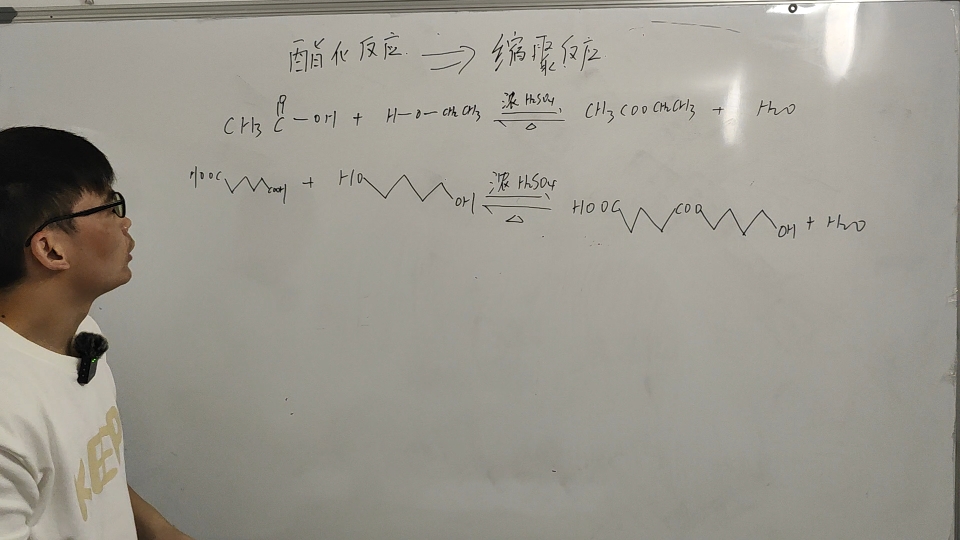 酯化反应 ⟹ 缩聚反应
O
CH3 C—OH + H—O—CH2CH3 浓 H2SO4 △ CH3COOCH2CH3 + H2O
HOOC COOH + HO OH 浓 H2SO4 △ HOOC COO OH + H2O
KEEP